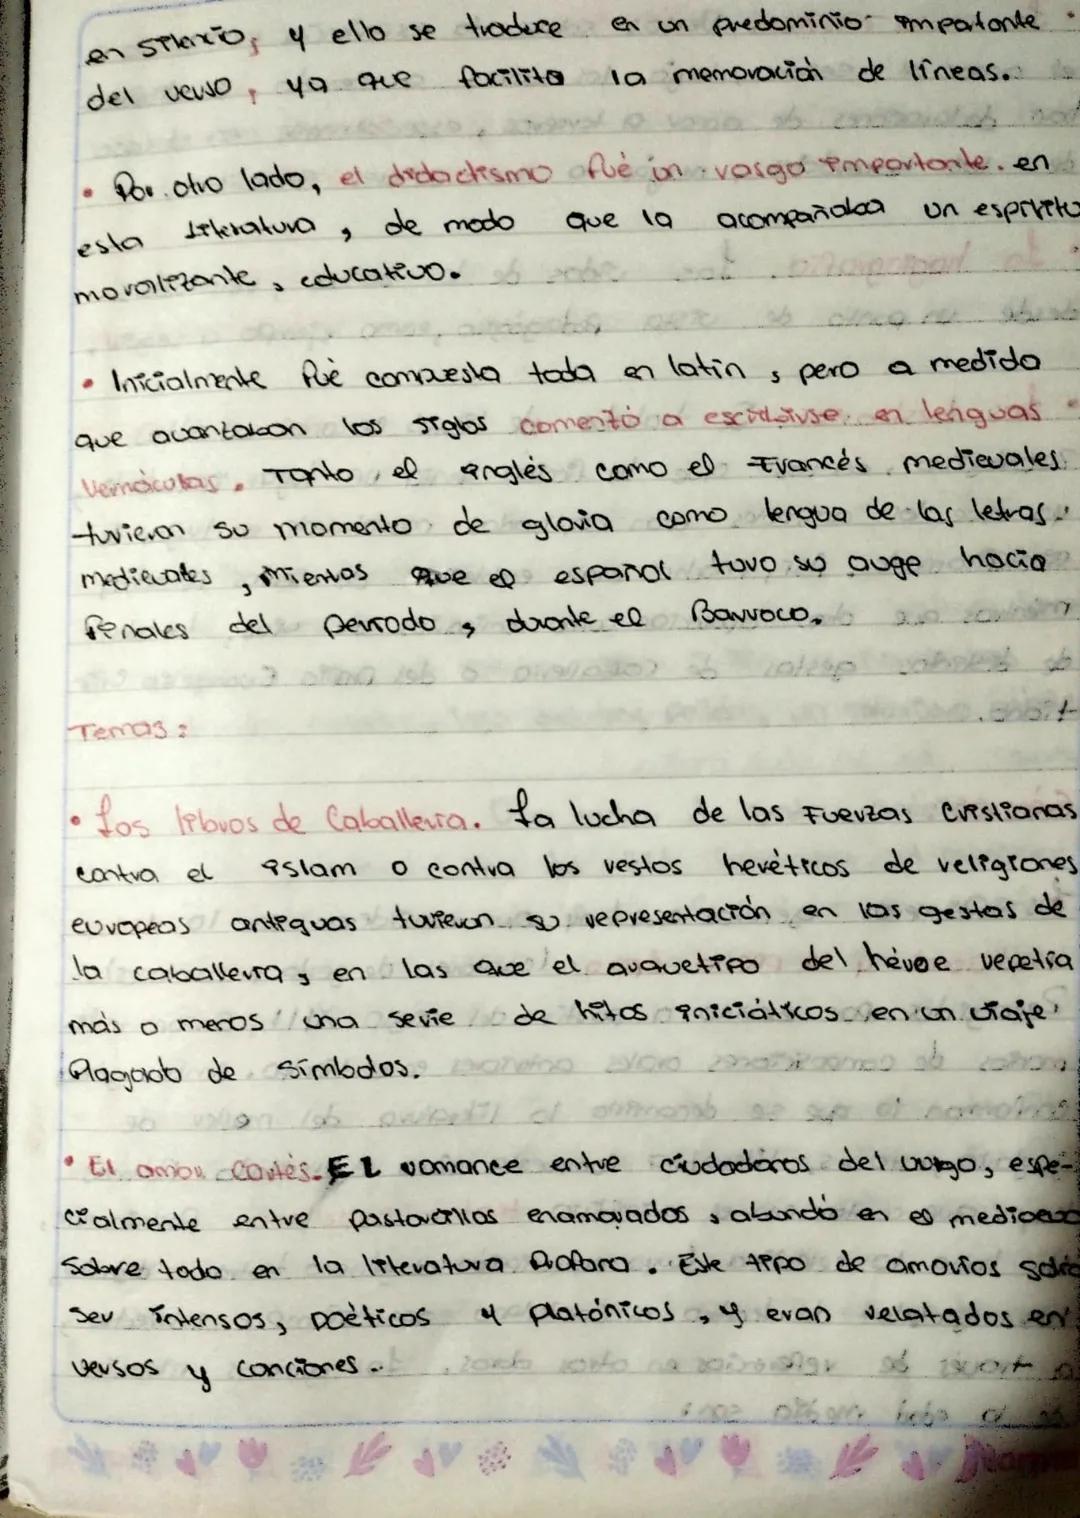 en silencio, y ello se traduce en un predominio impotante
del verso, ya que facilita la memoración de líneas.
• Por otro lado, el didactismo fué un rasgo importante. en
esta literatura, de modo que la acompañaba un espíritu
moralizante, educativo.
• Inicialmente fué compuesta toda en latín, pero a medida
que avanzaban los siglos comenzó a escribirse en lenguas
Vernáculas. Tanto el inglés como el Francés medievales
tuvieron su momento de gloria como lengua de las letras
medievales, mientras que el español tuvo su auge hacia
finales del periodo, durante el Barroco.
Temas:
• Los libros de Caballería. La lucha de las Fuerzas Cristianas
contra el islam o contra los restos heréticos de religiones
europeas antiguas tuvieron su representación en las gestas de
la caballería, en las que el arquetipo del héroe repetía
más o menos una serie de hitos iniciáticos en un viaje
Plagado de símbolos.
• El amor Cortés. EL romance entre ciudadanos del vulgo, espe-
cialmente entre pastorcillos enamorados, abundó en el medioevo
Sobre todo en la literatura Profana. Este tipo de amoríos solía
ser intensos, poéticos y platónicos, y eran relatados en
versos y canciones.